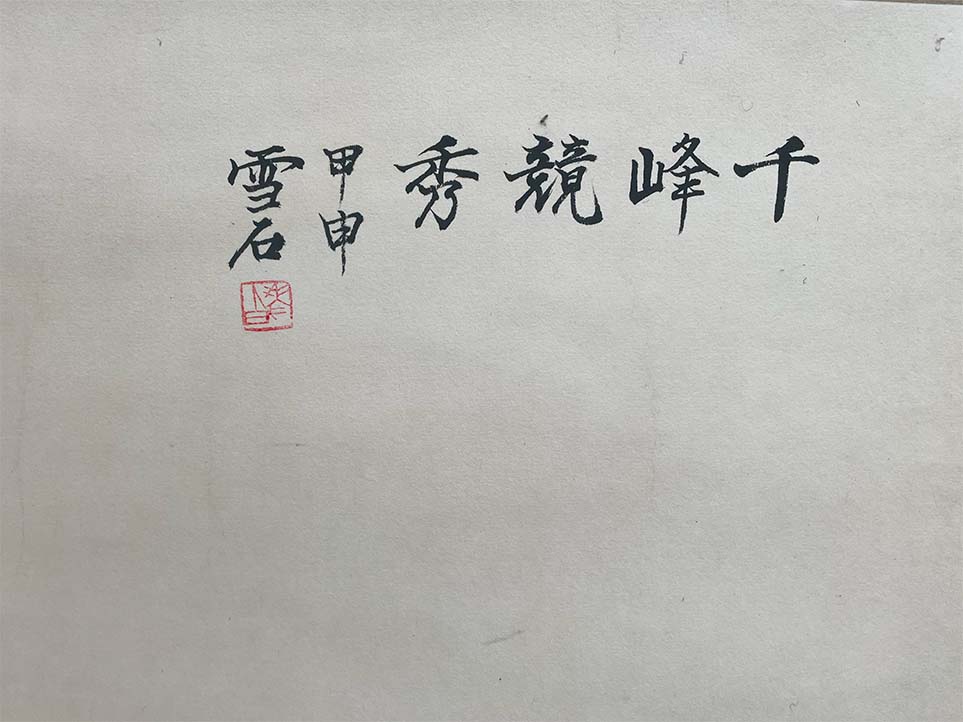 千峰競秀
甲申
雪石